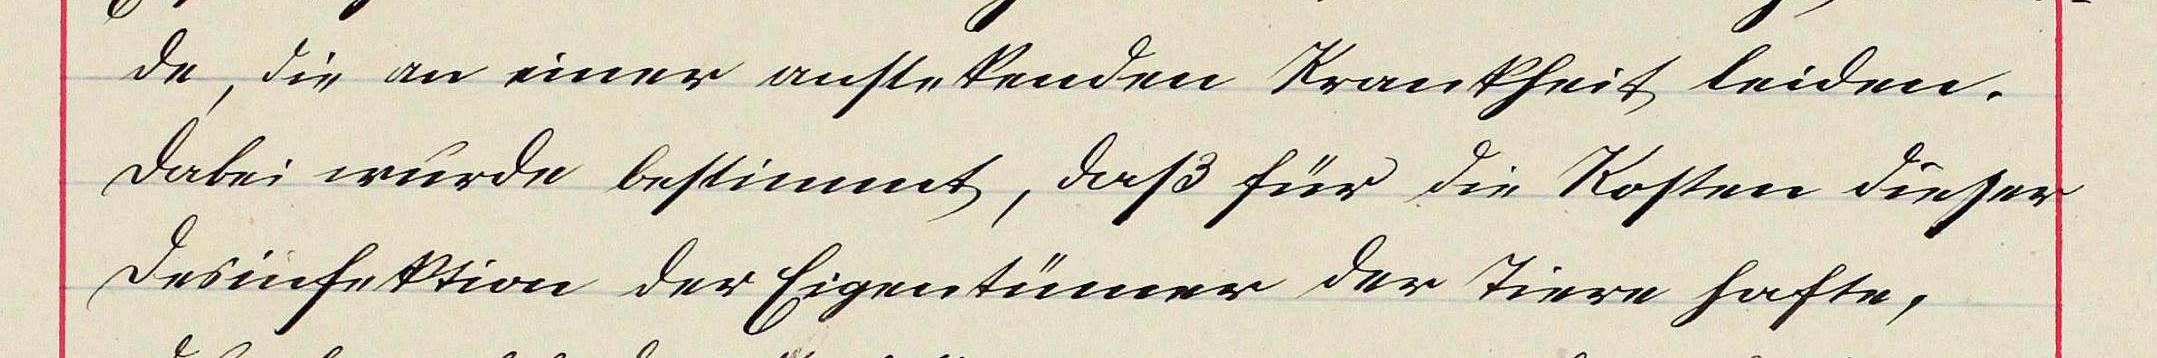 de, die an einer anstekenden Krankheit leiden.
Dabei wurde bestimmt, daß für die Kosten dieser
Desinfektion der Eigentümer der Tiere hafte,